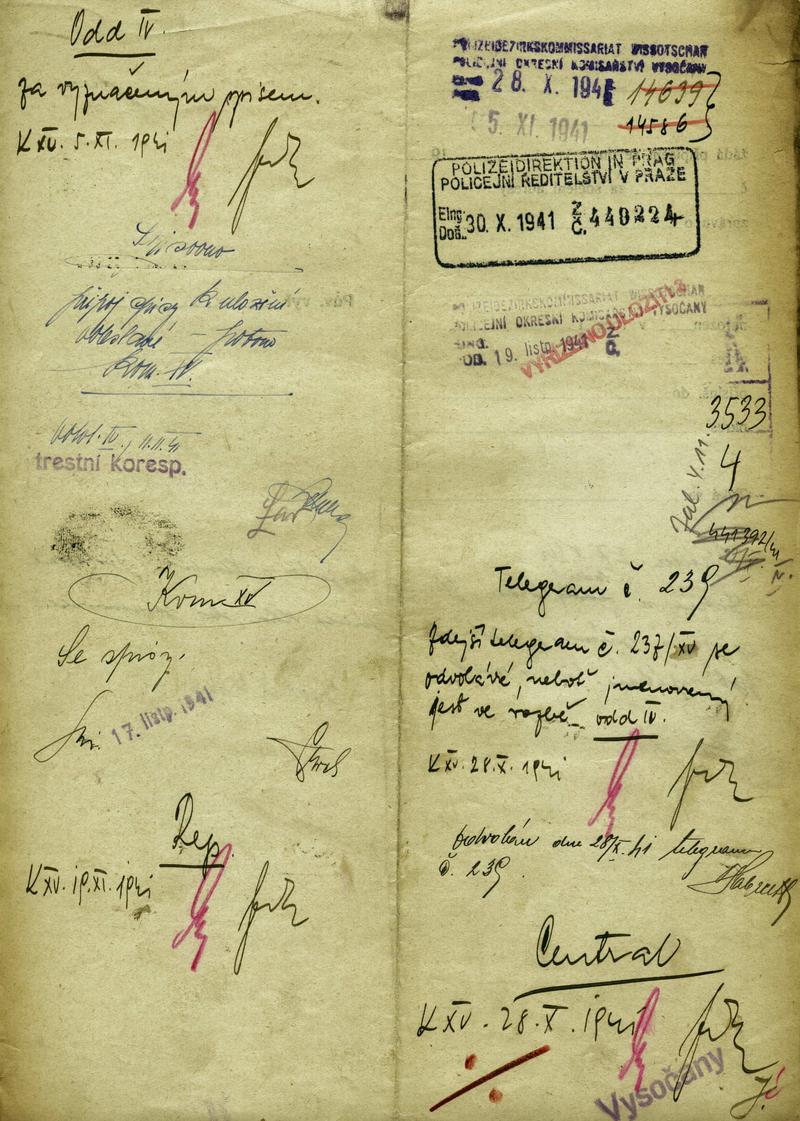 Odd IV.
za vyznačeným spisem.
K XV. 5. XI. 1941
Spisovno
připoj spisy k uložení
potom
Kom. IV.
IV, 11.11.41
trestní koresp.
Kom XV
Se spisy.
17. listp. 1941
Rep.
K XV. 19. XI. 1941
POLIZEIBEZIRKSKOMMISSARIAT WISSOTSCHAN
POLICEJNÍ OKRESNÍ KOMISAŘSTVÍ VYSOČANY
28. X. 1941
14639
5. XI. 1941
14586
POLIZEIDIREKTION IN PRAG
POLICEJNÍ ŘEDITELSTVÍ V PRAZE
Eing.
Doš. 30. X. 1941 Z. Č. 440224
POLIZEIBEZIRKSKOMMISSARIAT WISSOTSCHAN
POLICEJNÍ OKRESNÍ KOMISAŘSTVÍ VYSOČANY
19. listp. 1941 Z. Č.
VYŘÍZENO ULOŽITI
3533
4
Telegram č. 239
Zdejší telegram č. 237/XV se
odvolává, neboť jmenovaný
jest ve vazbě odd IV.
K XV. 28. X. 1941
Odvolán dne 28/X. 41 telegramem
č. 239.
Central
K XV. 28. X. 1941
Vysočany